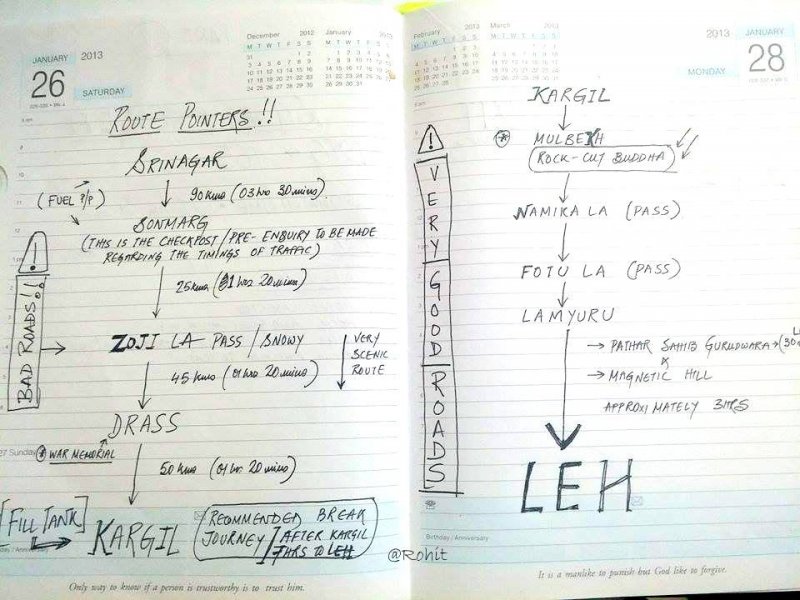 JANUARY 2013
26
SATURDAY
December 2012
January 2013
M T W T F S S
M T W T F S S
ROUTE POINTERS!!
SRINAGAR
90 kms (03 hrs 30 mins)
(FUEL P/P)
SONMARG
(THIS IS THE CHECKPOST / PRE- ENQUIRY TO BE MADE
REGARDING THE TIMINGS OF TRAFFIC)
25 kms (01 hrs 20 mins)
BAD ROADS!!
ZOJI LA PASS / SNOWY
VERY
SCENIC
ROUTE
45 kms (01 hrs 20 mins)
DRASS
27 Sunday
WAR MEMORIAL
50 kms (01 hr 20 mins)
[FILL TANK]
KARGIL
RECOMMENDED BREAK
JOURNEY / AFTER KARGIL
7 HRS TO LEH
Only way to know if a person is trustworthy is to trust him.
February 2013
March 2013
M T W T F S S
M T W T F S S
2013 JANUARY
28
MONDAY
KARGIL
MULBEKH
ROCK-CUT BUDDHA
NAMIKA LA (PASS)
FOTU LA (PASS)
LAMYURU
→ PATHAR SAHIB GURUDWARA
→ MAGNETIC HILL
APPROXIMATELY 3 HRS
VERY GOOD ROADS
LEH
Birthday / Anniversary
@Rohit
It is a manlike to punish but God like to forgive.